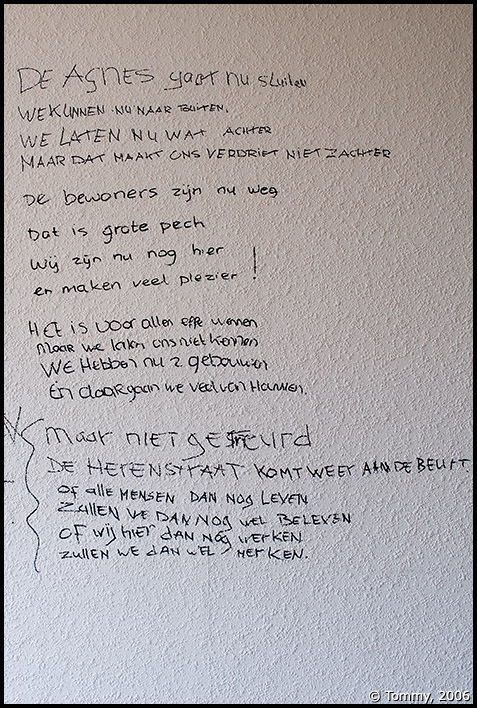 DE AGNES gaat nu sluiten
WE KUNNEN NU NAAR BUITEN.
WE LATEN NU WAT ACHTER
MAAR DAT MAAKT ONS VERDRIET NIET ZACHTER
De bewoners zijn nu weg
Dat is grote pech
Wij zijn nu nog hier
en maken veel plezier !
HEt is voor allen effe wennen
maar we laten ons niet kennen
WE HEbben nu 2 gebouwen
En daar gaan we veel van Houwen.
Maar NIET getreurd
DE HERENSTRAAT KOMT WEER AAN DE BEURT
Of alle MENSEN DAN NOG LEVEN
ZULLEN WE DAN NOG WEL BELEVEN
OF Wij hier DAN NOG WERKEN
zullen WE dAN WEL MERKEN.
© Tommy, 2006